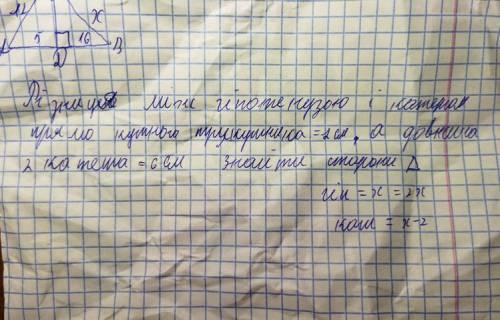 12 x
5 16 B
D
Різниця між гіпотенузою і катетом
прямокутного трикутника = 2 см, а довжина
2 катета = 6 см знайти сторони Δ
гіп = x = 2x
кат = x-2